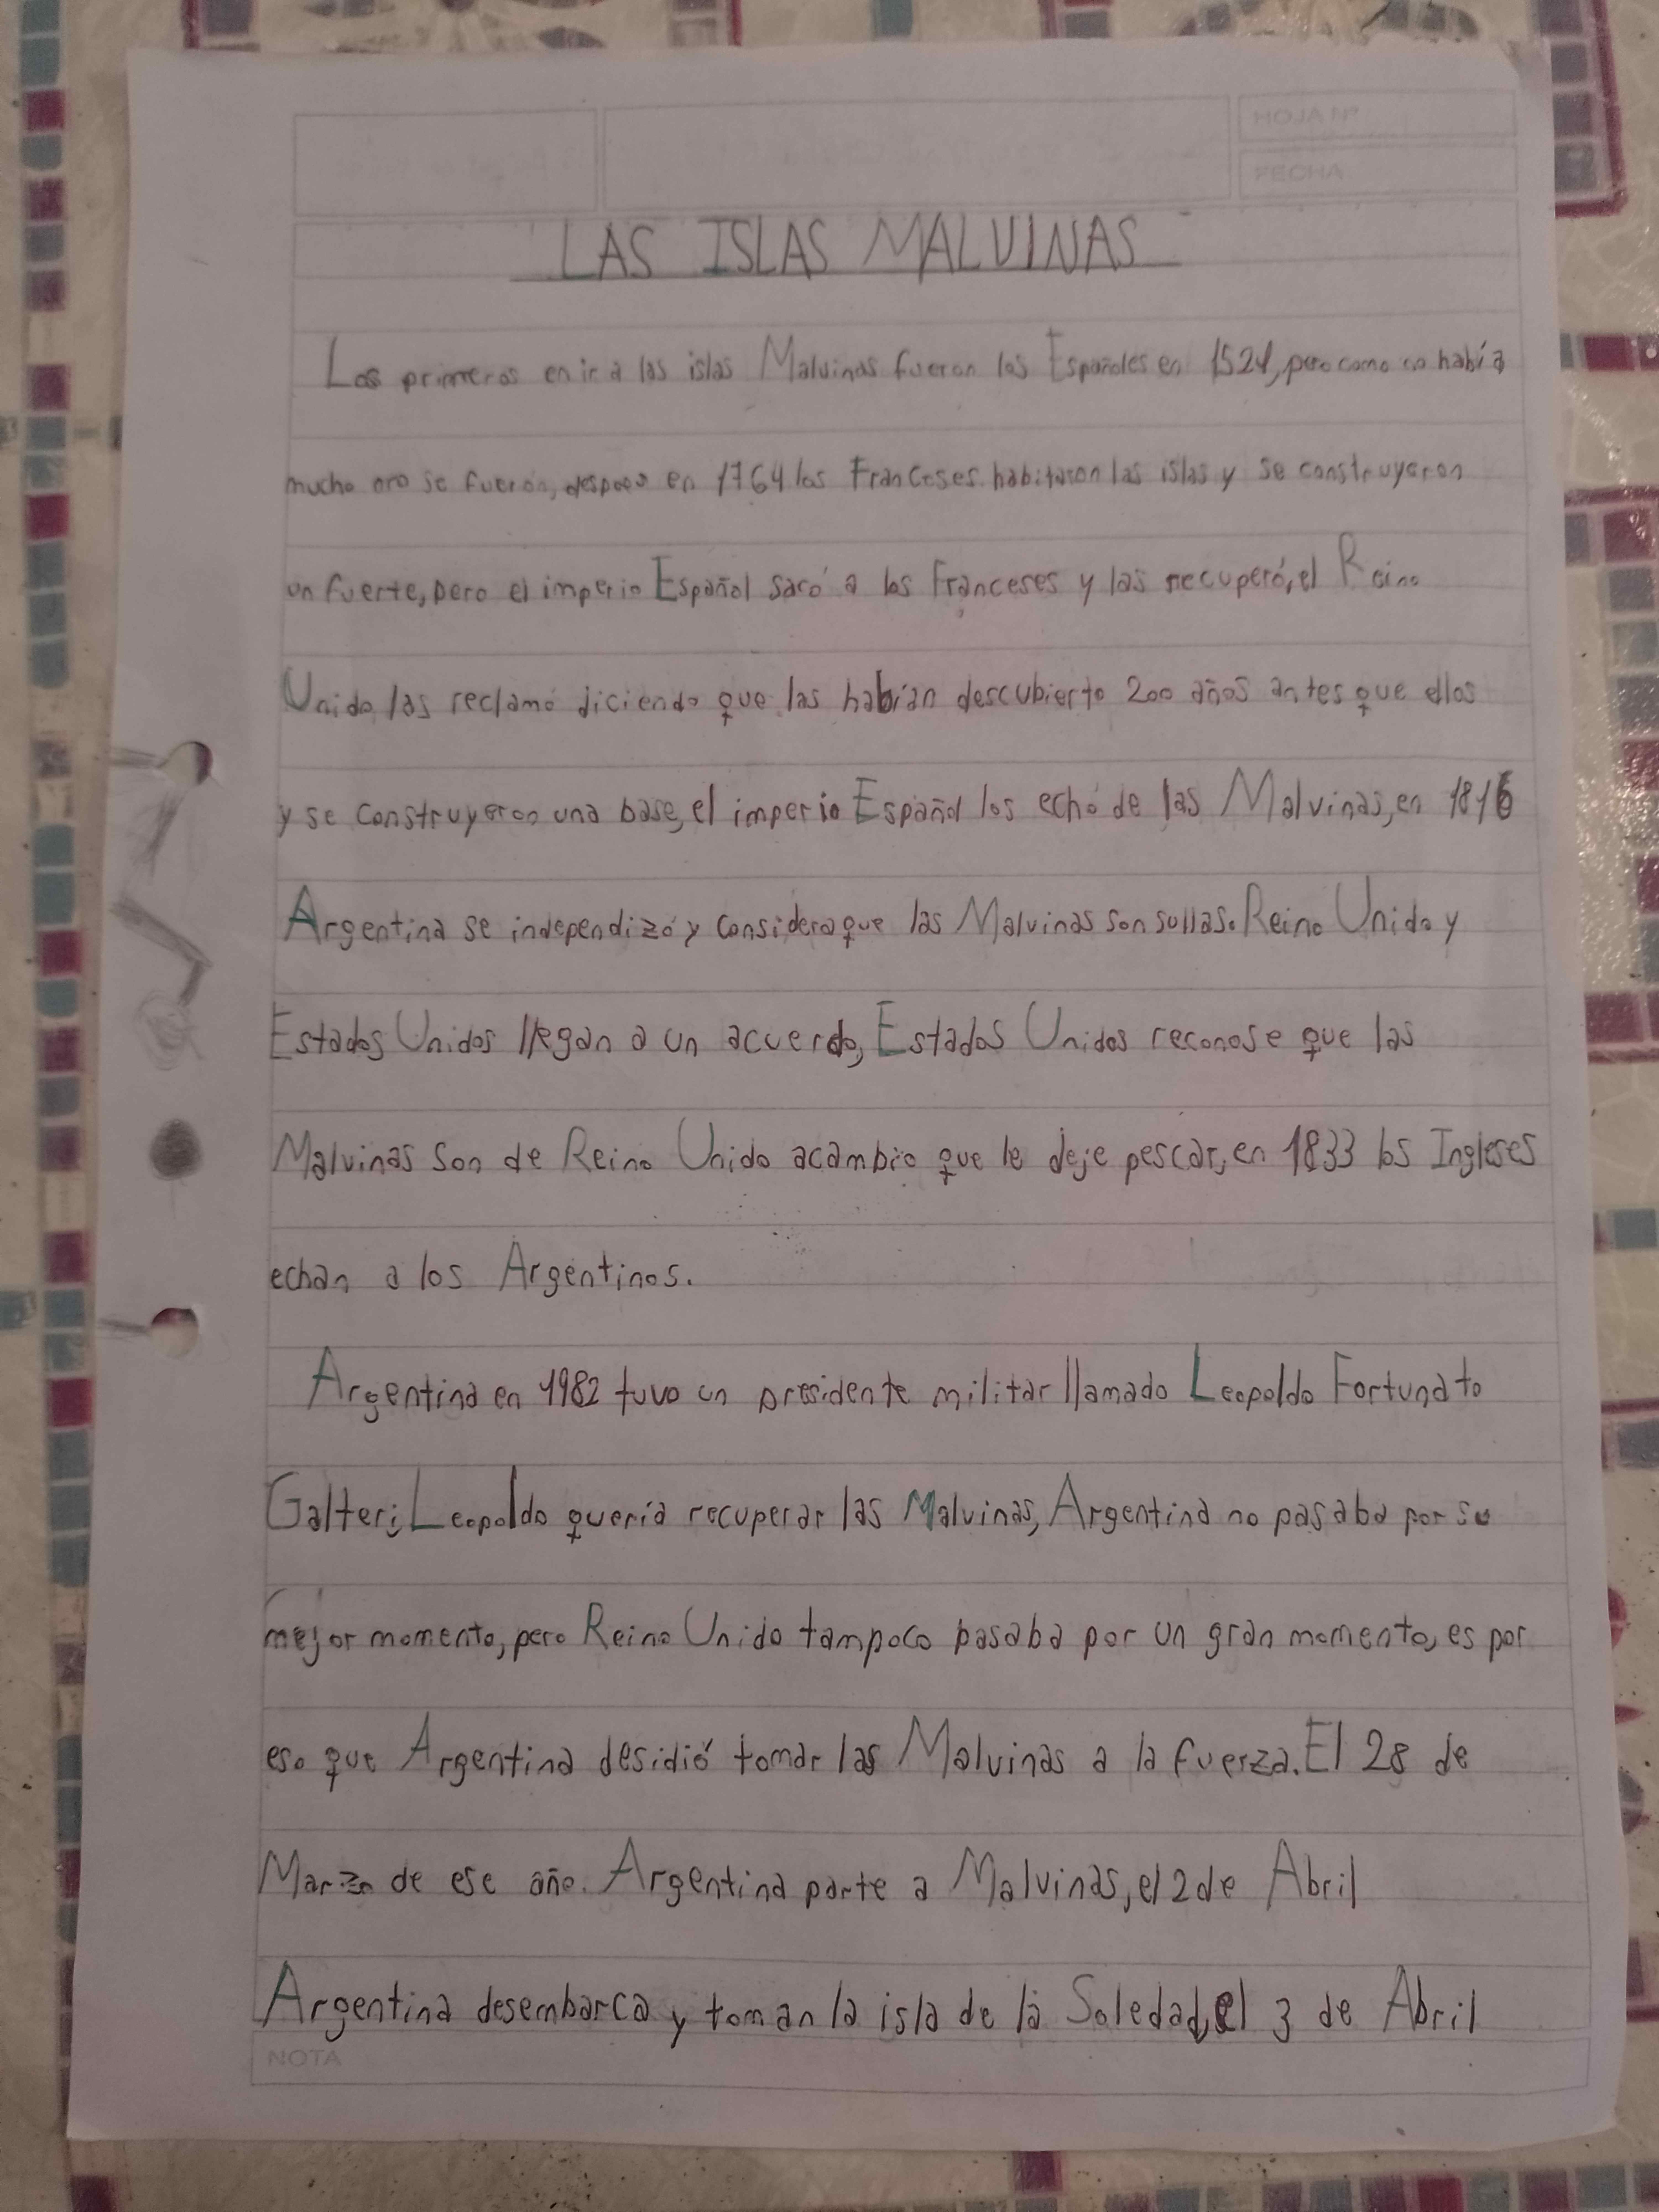 HOJA Nº
FECHA
LAS ISLAS MALVINAS
Los primeros en ir a las islas Malvinas fueron los Españoles en 1524, pero como no había
mucho oro se fueron, despues en 1764 los Franceses habitaron las islas y se construyeron
un fuerte, pero el imperio Español sacó a los Franceses y las recuperó, el Reino
Unido las reclamó diciendo que las habían descubierto 200 años antes que ellos
y se construyeron una base, el imperio Español los echó de las Malvinas, en 1816
Argentina se independizó y considera que las Malvinas son sullas. Reino Unido y
Estados Unidos llegan a un acuerdo, Estados Unidos reconose que las
Malvinas son de Reino Unido acambio que le deje pescar, en 1833 los Ingleses
echan a los Argentinos.
Argentina en 1982 tuvo un presidente militar llamado Leopoldo Fortunato
Galteri, Leopoldo quería recuperar las Malvinas, Argentina no pasaba por su
mejor momento, pero Reino Unido tampoco pasaba por un gran momento, es por
eso que Argentina desidió tomar las Malvinas a la fuerza. El 28 de
Marzo de ese año. Argentina parte a Malvinas, el 2 de Abril
Argentina desembarca y toman la isla de la Soledad, el 3 de Abril
NOTA